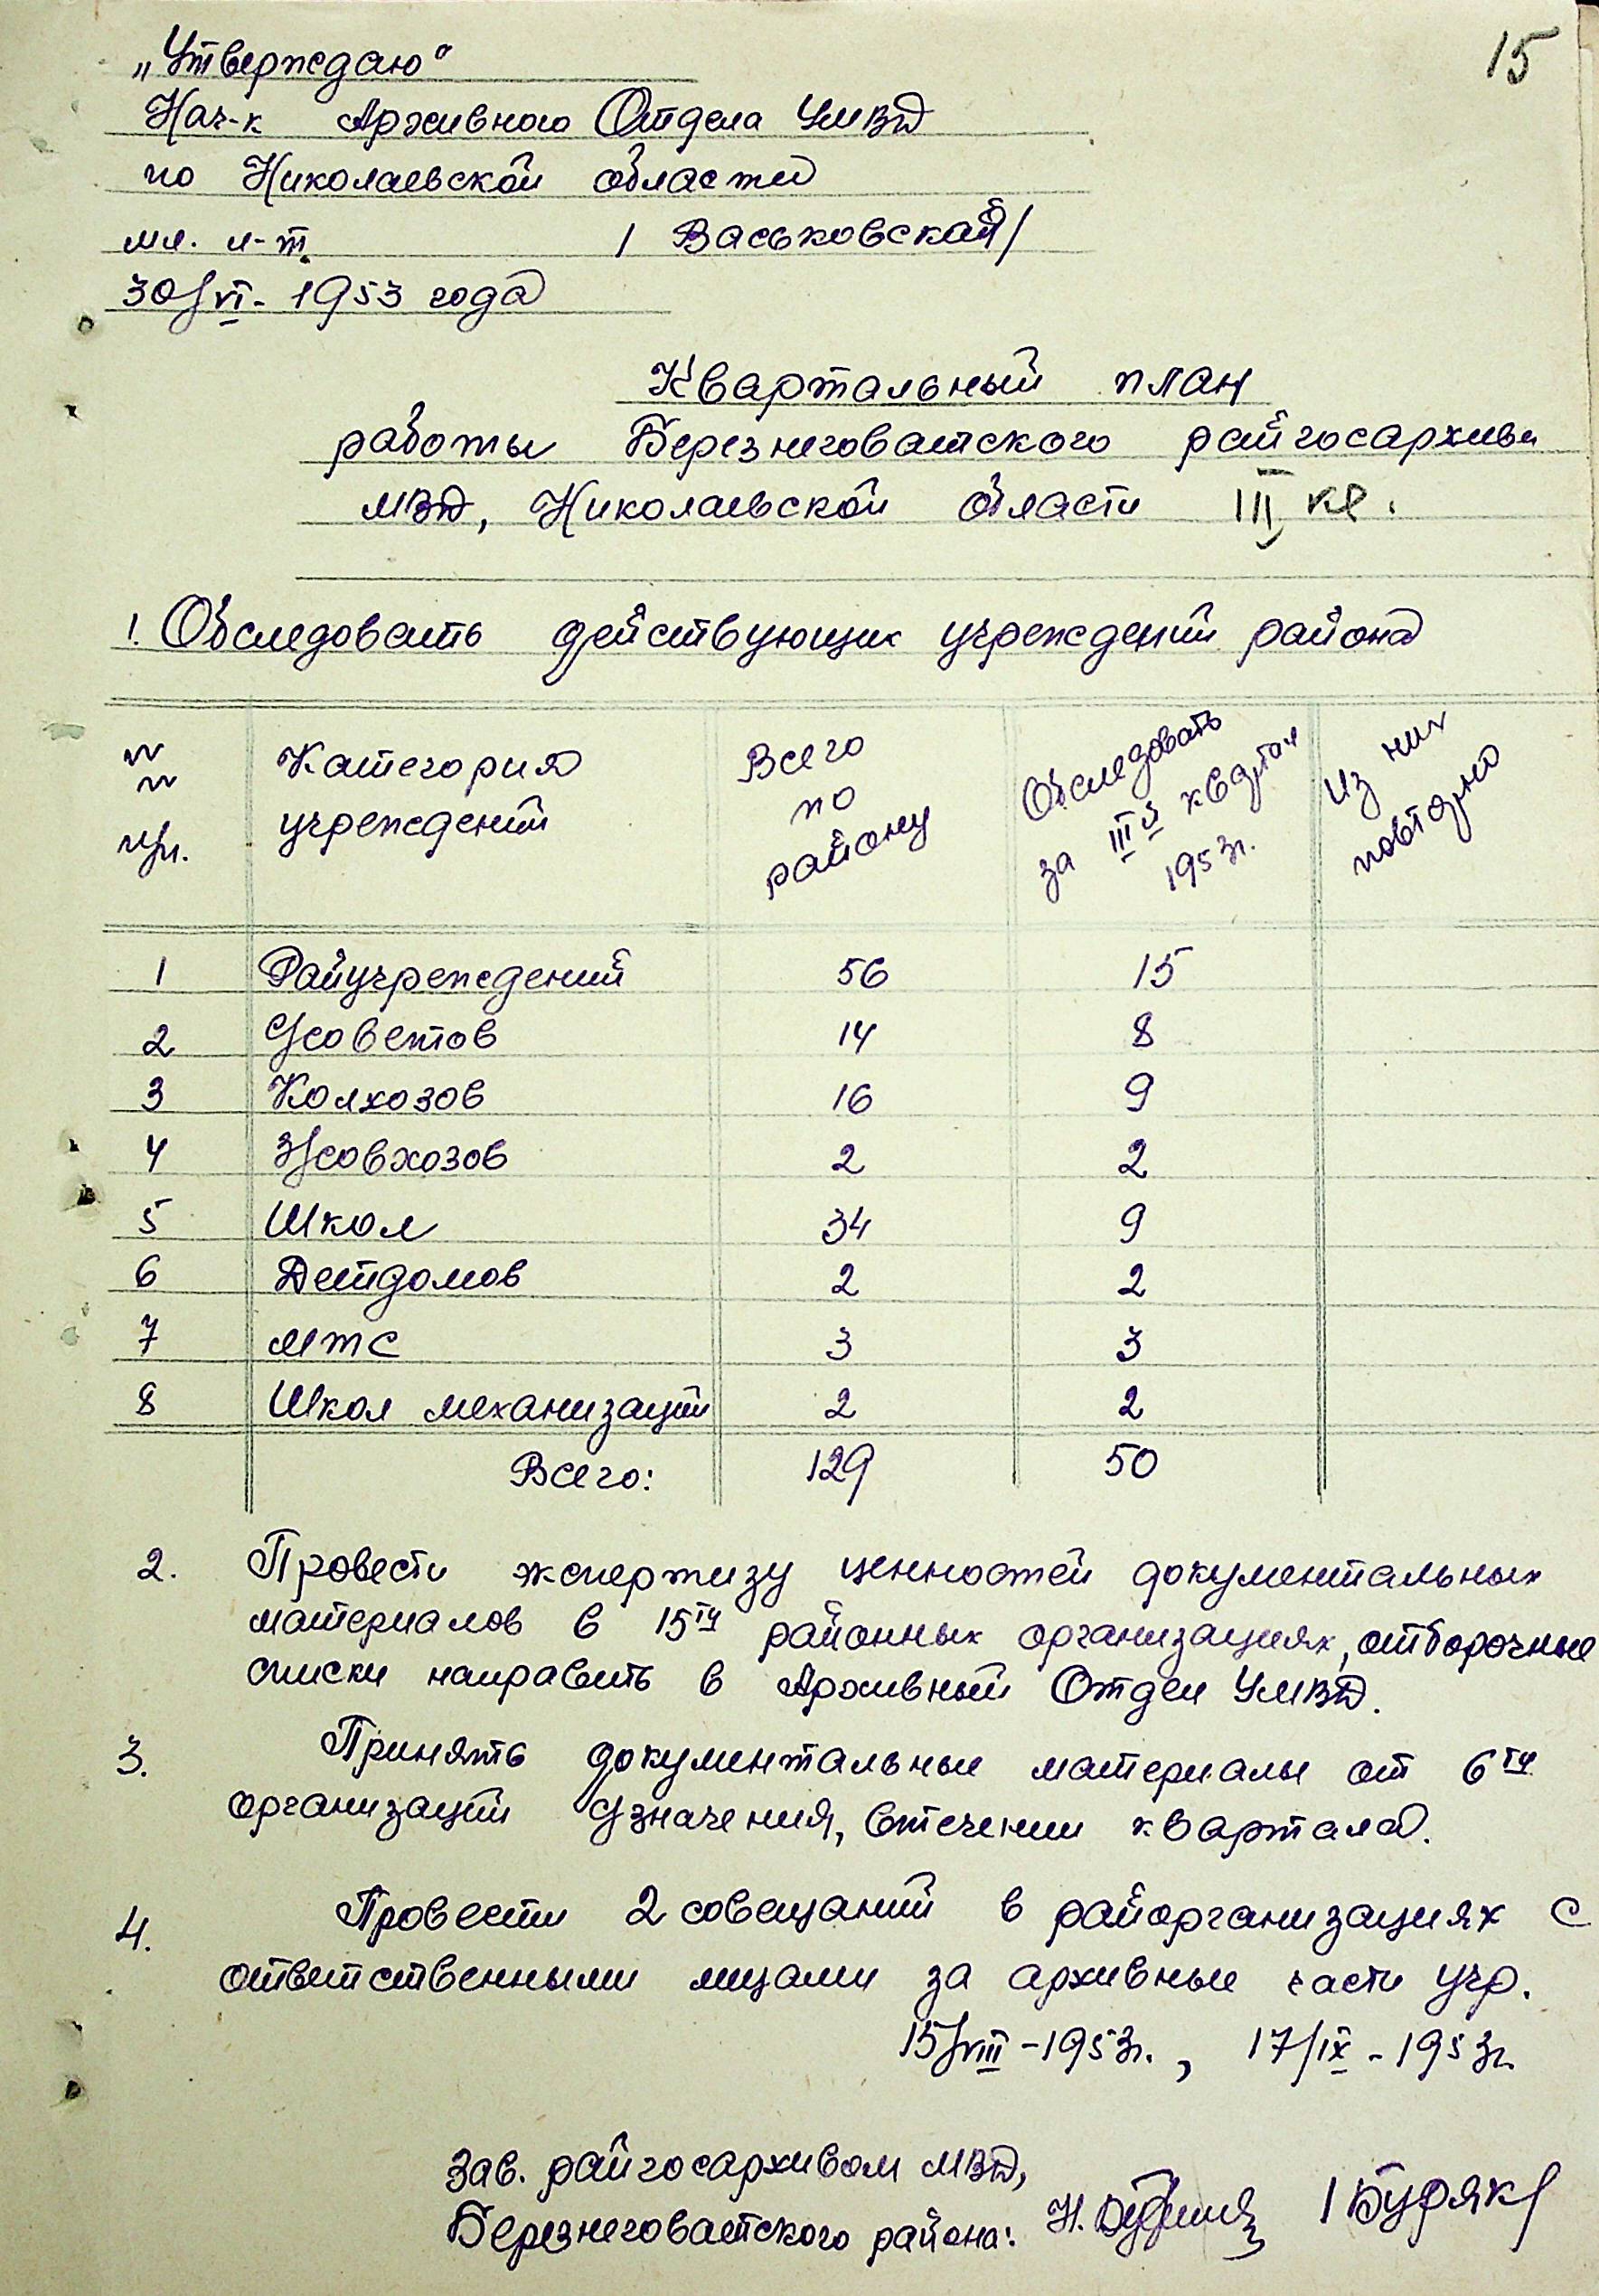 15
„Утверждаю"
Нач-к Архивного Отдела УМВД
по Николаевской области
мл. л-т. / Васьковская/
30/VI - 1953 года
Квартальный план
работы Березнеговатского райгосархива
МВД, Николаевской области III кв.
1. Обследовать действующих учреждений района
№№ п/п. Категория учреждений Всего по району Обследовать за III й квартал 1953г. Из них повторно
1 Райучреждений 56 15
2 С/советов 14 8
3 Колхозов 16 9
4 З/совхозов 2 2
5 Школ 34 9
6 Детдомов 2 2
7 МТС 3 3
8 Школ механизаций 2 2
Всего: 129 50
2. Провести экспертизу ценностей документальных
материалов в 15ти районных организациях, отборочные
списки направить в Архивный Отдел УМВД.
3. Принять документальные материалы от 6ти
организаций С/значения, втечении квартала.
4. Провести 2 совещаний в райорганизациях с
ответственными лицами за архивные части учр.
15/VIII - 1953г., 17/IX - 1953г.
Зав. райгосархивом МВД,
Березнеговатского района: Н. /Буряк/